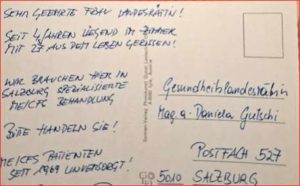 SEHR GEEHRTE FRAU LANDESRÄTIN!
SEIT 4 JAHREN LIEGEND IM ZIMMER
MIT 27 AUS DEM LEBEN GERISSEN!
WIR BRAUCHEN HIER IN
SALZBURG SPEZIALISIERTE
ME/CFS BEHANDLUNG
BITTE HANDELN SIE!
ME/CFS PATIENTEN
SEIT 1969 UNVERSORGT!
Gesundheitslandesrätin
Mag.a Daniela Gutschi
POSTFACH 527
5010 SALZBURG